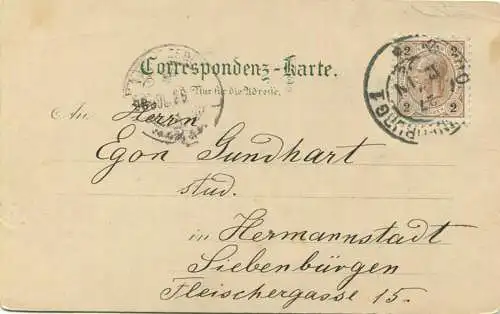 Correspondenz-Karte.
Nur für die Adresse.
An Herrn
Egon Gundhart
stud.
in Hermannstadt
Siebenbürgen
Fleischergasse 15.
2 2
2 2